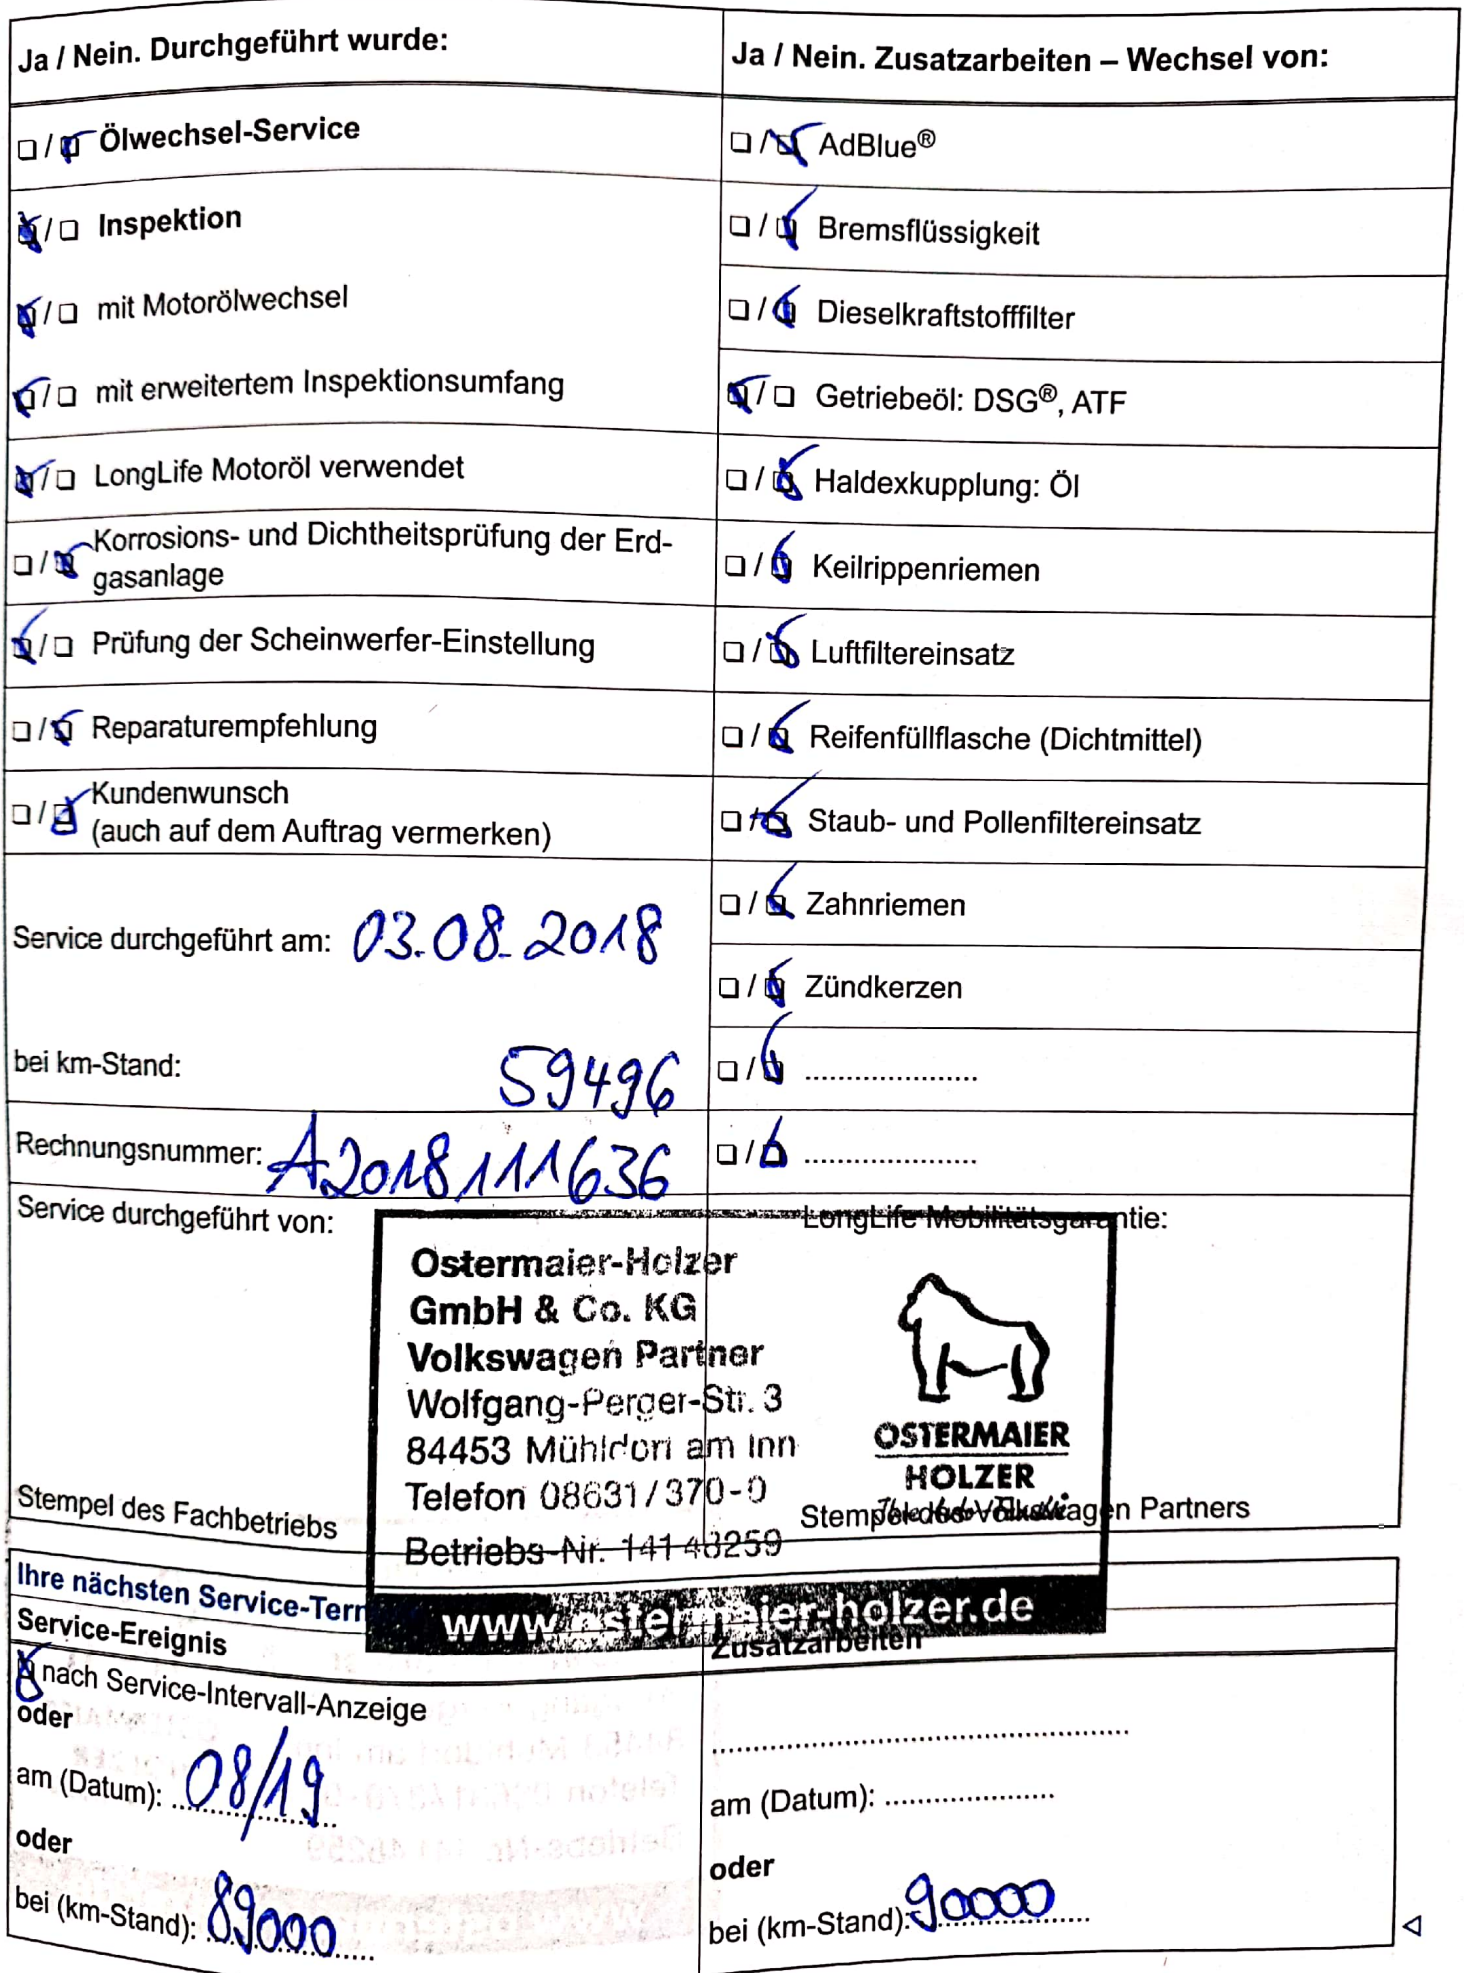 Ja / Nein. Durchgeführt wurde:
☐ / ☑ Ölwechsel-Service
☑ / ☐ Inspektion
☑ / ☐ mit Motorölwechsel
☑ / ☐ mit erweitertem Inspektionsumfang
☑ / ☐ LongLife Motoröl verwendet
☐ / ☑ Korrosions- und Dichtheitsprüfung der Erd-
gasanlage
☑ / ☐ Prüfung der Scheinwerfer-Einstellung
☐ / ☑ Reparaturempfehlung
☐ / ☑ Kundenwunsch
(auch auf dem Auftrag vermerken)
Service durchgeführt am: 03.08.2018
bei km-Stand: 59496
Rechnungsnummer: A2018111636
Ja / Nein. Zusatzarbeiten – Wechsel von:
☐ / ☑ AdBlue®
☐ / ☑ Bremsflüssigkeit
☐ / ☑ Dieselkraftstofffilter
☑ / ☐ Getriebeöl: DSG®, ATF
☐ / ☑ Haldexkupplung: Öl
☐ / ☑ Keilrippenriemen
☐ / ☑ Luftfiltereinsatz
☐ / ☑ Reifenfüllflasche (Dichtmittel)
☐ / ☑ Staub- und Pollenfiltereinsatz
☐ / ☑ Zahnriemen
☐ / ☑ Zündkerzen
☐ / ☑ .....................
☐ / ☑ .....................
Service durchgeführt von:
LongLife Mobilitätsgarantie:
Ostermaier-Holzer
GmbH & Co. KG
Volkswagen Partner
Wolfgang-Perger-Str. 3
84453 Mühldorf am Inn
Telefon 08631/370-0
Betriebs-Nr. 141 46259
www.ostermaier-holzer.de
OSTERMAIER
HOLZER
Stempel des Fachbetriebs
Stempel des Volkswagen Partners
Ihre nächsten Service-Term
Service-Ereignis
☑ nach Service-Intervall-Anzeige
oder
am (Datum): 08/19
oder
bei (km-Stand): 89000
Zusatzarbeiten
am (Datum): .....................
oder
bei (km-Stand): 90000